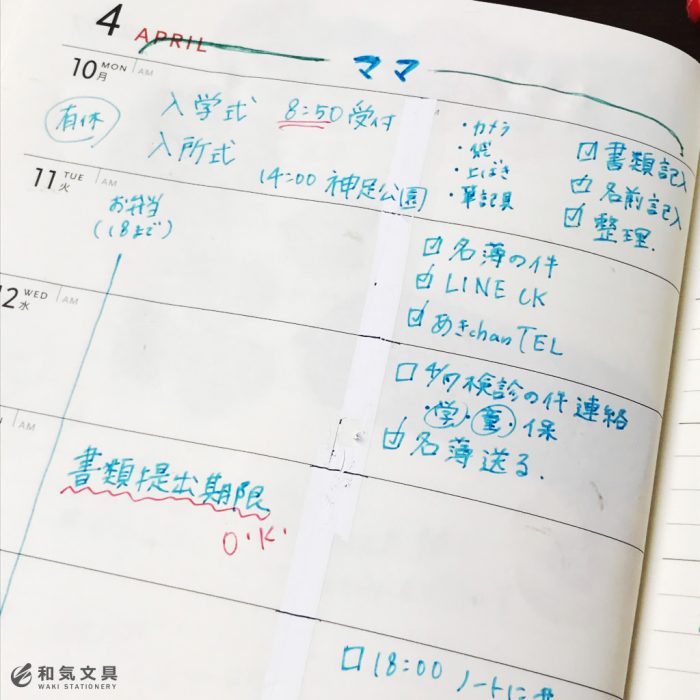 4 APRIL
ママ
10 MON 月 AM
有休
入学式 8:50 受付
入所式
14:00 神足公園
・カメラ
・上ばき
・筆記具
☑ 書類記入
☑ 名前記入
☑ 整理.
11 TUE 火 AM
お弁当
(18まで)
☑ 名薄の件
☑ LINE CK
☑ あきchan TEL
12 WED 水 AM
検診の件 連絡
学・童・保
☑ 名薄送る.
AM
書類提出期限
O.K.
□ 18:00 ノートに
和気文具
WAKI STATIONERY